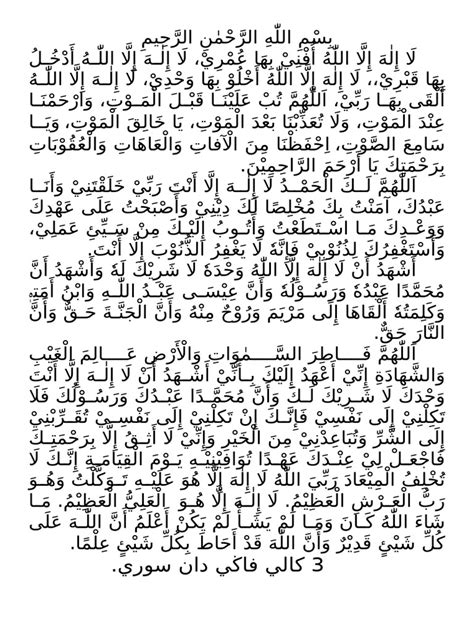 بِسْمِ اللّٰهِ الرَّحْمٰنِ الرَّحِيمِ
لَا إِلٰهَ إِلَّا اللّٰهُ أُفْنِيْ بِهَا عُمْرِيْ، لَا إِلٰهَ إِلَّا اللّٰهُ أَدْخُلُ
بِهَا قَبْرِيْ،، لَا إِلٰهَ إِلَّا اللّٰهُ أَخْلُوْ بِهَا وَحْدِيْ، لَا إِلٰهَ إِلَّا اللّٰهُ
أَلْقَى بِهَا رَبِّيْ، اَللّٰهُمَّ تُبْ عَلَيْنَا قَبْلَ الْمَوْتِ، وَارْحَمْنَا
عِنْدَ الْمَوْتِ، وَلَا تُعَذِّبْنَا بَعْدَ الْمَوْتِ، يَا خَالِقَ الْمَوْتِ، وَيَا
سَامِعَ الصَّوْتِ، اِحْفَظْنَا مِنَ الْآفَاتِ وَالْعَاهَاتِ وَالْعُقُوْبَاتِ
بِرَحْمَتِكَ يَا أَرْحَمَ الرَّاحِمِيْنَ.
اَللّٰهُمَّ لَكَ الْحَمْدُ لَا إِلٰهَ إِلَّا أَنْتَ رَبِّيْ خَلَقْتَنِيْ وَأَنَا
عَبْدُكَ، آمَنْتُ بِكَ مُخْلِصًا لَكَ دِيْنِيْ وَأَصْبَحْتُ عَلَى عَهْدِكَ
وَوَعْدِكَ مَا اسْتَطَعْتُ وَأَتُوبُ إِلَيْكَ مِنْ سَيِّئِ عَمَلِيْ،
وَأَسْتَغْفِرُكَ لِذُنُوْبِيْ فَإِنَّهُ لَا يَغْفِرُ الذُّنُوْبَ إِلَّا أَنْتَ.
أَشْهَدُ أَنْ لَا إِلٰهَ إِلَّا اللّٰهُ وَحْدَهُ لَا شَرِيْكَ لَهُ وَأَشْهَدُ أَنَّ
مُحَمَّدًا عَبْدُهُ وَرَسُوْلُهُ وَأَنَّ عِيْسَى عَبْدُ اللّٰهِ وَابْنُ أَمَتِهِ
وَكَلِمَتُهُ أَلْقَاهَا إِلَى مَرْيَمَ وَرُوْحٌ مِنْهُ وَأَنَّ الْجَنَّةَ حَقٌّ وَأَنَّ
النَّارَ حَقٌّ.
اَللّٰهُمَّ فَاطِرَ السَّمٰوَاتِ وَالْأَرْضِ عَالِمَ الْغَيْبِ
وَالشَّهَادَةِ إِنِّيْ أَعْهَدُ إِلَيْكَ بِأَنِّيْ أَشْهَدُ أَنْ لَا إِلٰهَ إِلَّا أَنْتَ
وَحْدَكَ لَا شَرِيْكَ لَكَ وَأَنَّ مُحَمَّدًا عَبْدُكَ وَرَسُوْلُكَ فَلَا
تَكِلْنِيْ إِلَى نَفْسِيْ فَإِنَّكَ إِنْ تَكِلْنِيْ إِلَى نَفْسِيْ تُقَرِّبْنِيْ
إِلَى الشَّرِّ وَتُبَاعِدْنِيْ مِنَ الْخَيْرِ وَإِنِّيْ لَا أَثِقُ إِلَّا بِرَحْمَتِكَ
فَاجْعَلْ لِيْ عِنْدَكَ عَهْدًا تُوَافِيْنِيْهِ يَوْمَ الْقِيَامَةِ إِنَّكَ لَا
تُخْلِفُ الْمِيْعَادَ رَبِّيَ اللّٰهُ لَا إِلٰهَ إِلَّا هُوَ عَلَيْهِ تَوَكَّلْتُ وَهُوَ
رَبُّ الْعَرْشِ الْعَظِيْمُ. لَا إِلٰهَ إِلَّا هُوَ الْعَلِيُّ الْعَظِيْمُ. مَا
شَاءَ اللّٰهُ كَانَ وَمَا لَمْ يَشَأْ لَمْ يَكُنْ أَعْلَمُ أَنَّ اللّٰهَ عَلَى
كُلِّ شَيْئٍ قَدِيْرٌ وَأَنَّ اللّٰهَ قَدْ أَحَاطَ بِكُلِّ شَيْئٍ عِلْمًا.
3 كالي فاݢي دان سوري.